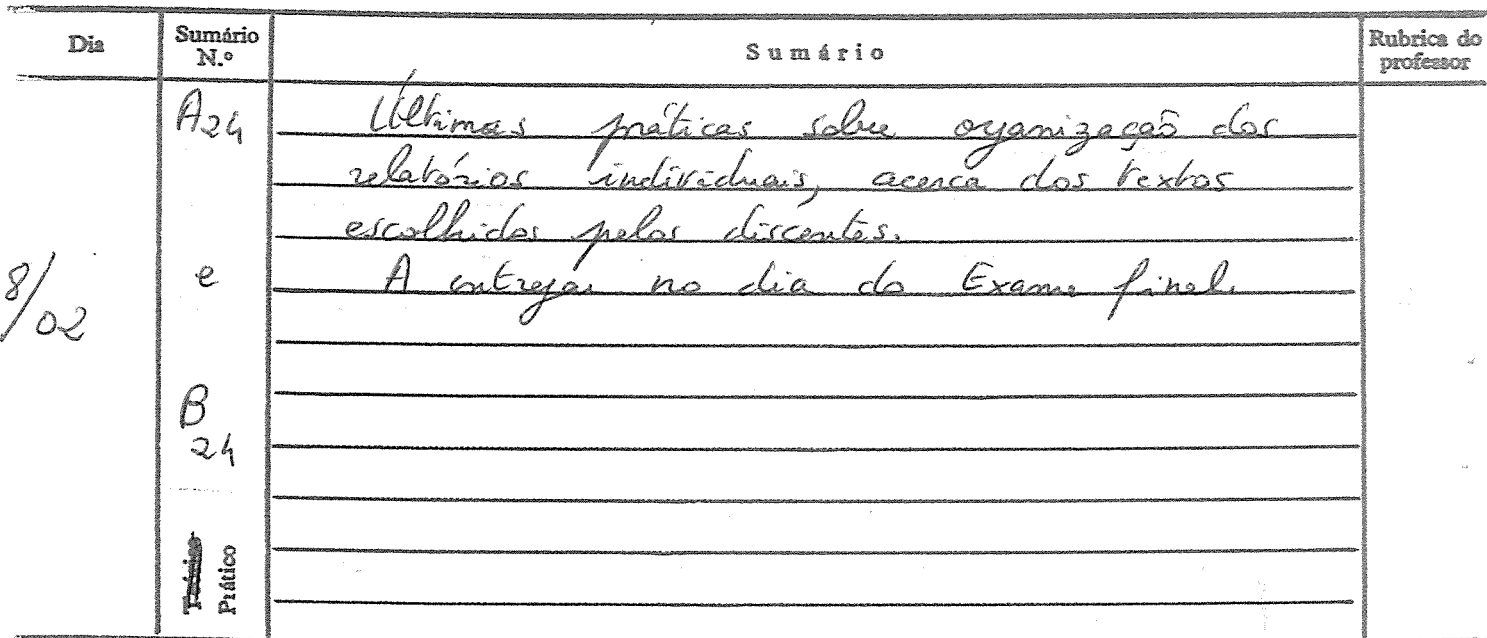 Dia
Sumário
N.º
Sumário
Rubrica do
professor
8/02
A24
e
B
24
Últimas práticas sobre organização dos
relatórios individuais, acerca dos textos
escolhidos pelos discentes.
A entregar no dia do Exame final.
Teórico
Prático